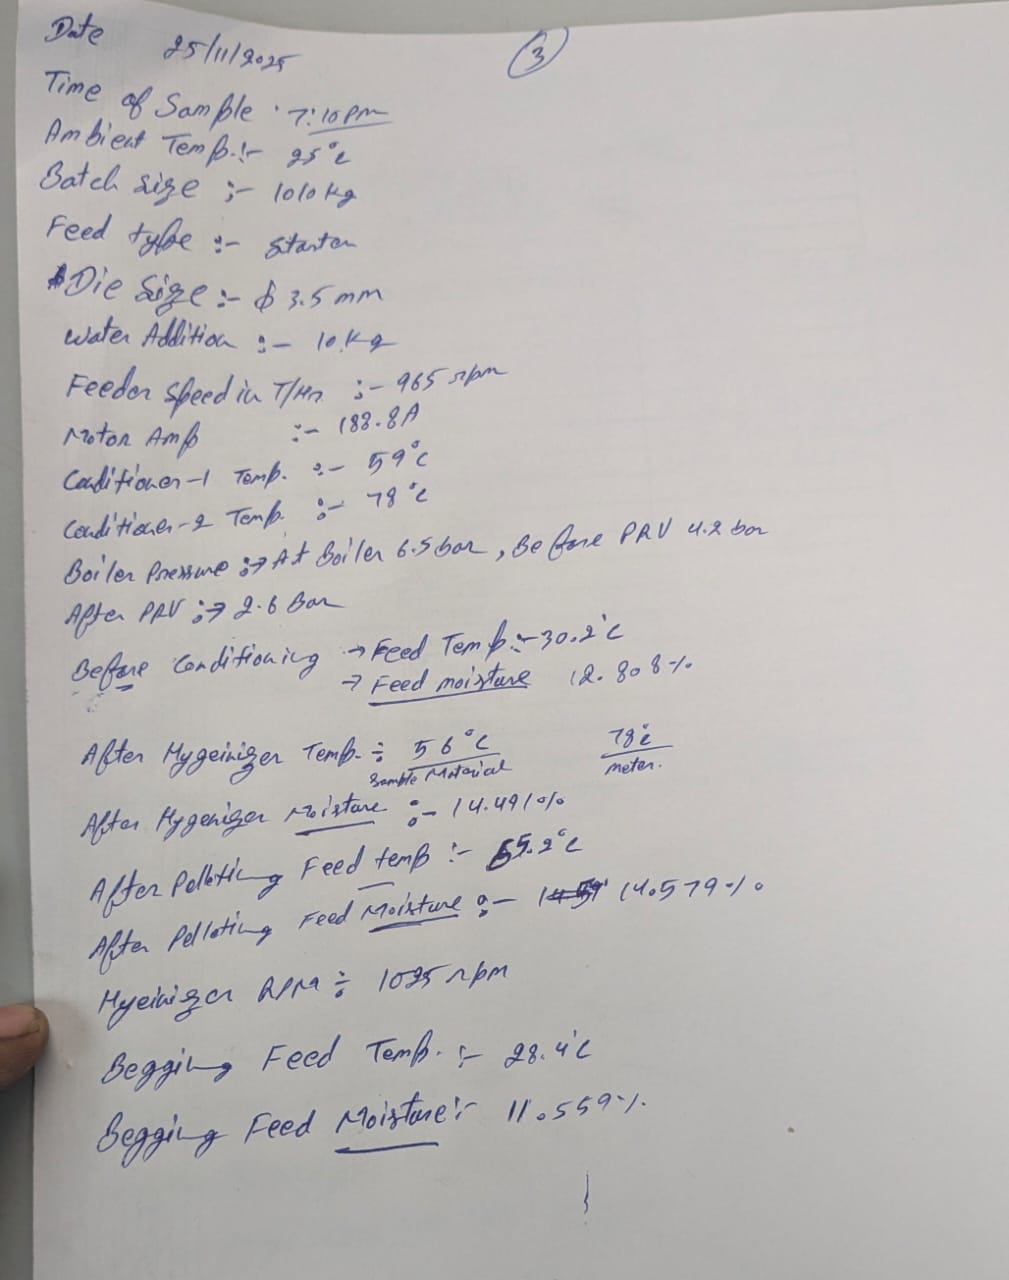 Date 25/11/2025
3
Time of Sample : 7:10 Pm
Ambient Temp. :- 25°C
Batch size :- 1010 kg
Feed type :- Starter
Die Size :- ϕ 3.5 mm
Water Addition :- 10 kg
Feeder Speed in T/Hr :- 965 rpm
Motor Amp :- 188.8A
Conditioner-1 Temp. :- 59°C
Conditioner-2 Temp. :- 78°C
Boiler Pressure :→ At Boiler 6.5 bar, Before PRV 4.2 bar
After PRV :→ 2.6 Bar
Before Conditioning → Feed Temp :- 30.2°C
→ Feed moisture 12.808%
After Hygeinizer Temp. ÷ 56°C 78°C
Sample Material meter.
After Hygenizer Moisture :- 14.491%
After Pelleting Feed temp :- 55.2°C
After Pelleting Feed Moisture :- 14.579%
Hyeinizer RPM ÷ 1025 rpm
Begging Feed Temp. :- 28.4°C
Begging Feed Moisture :- 11.559%